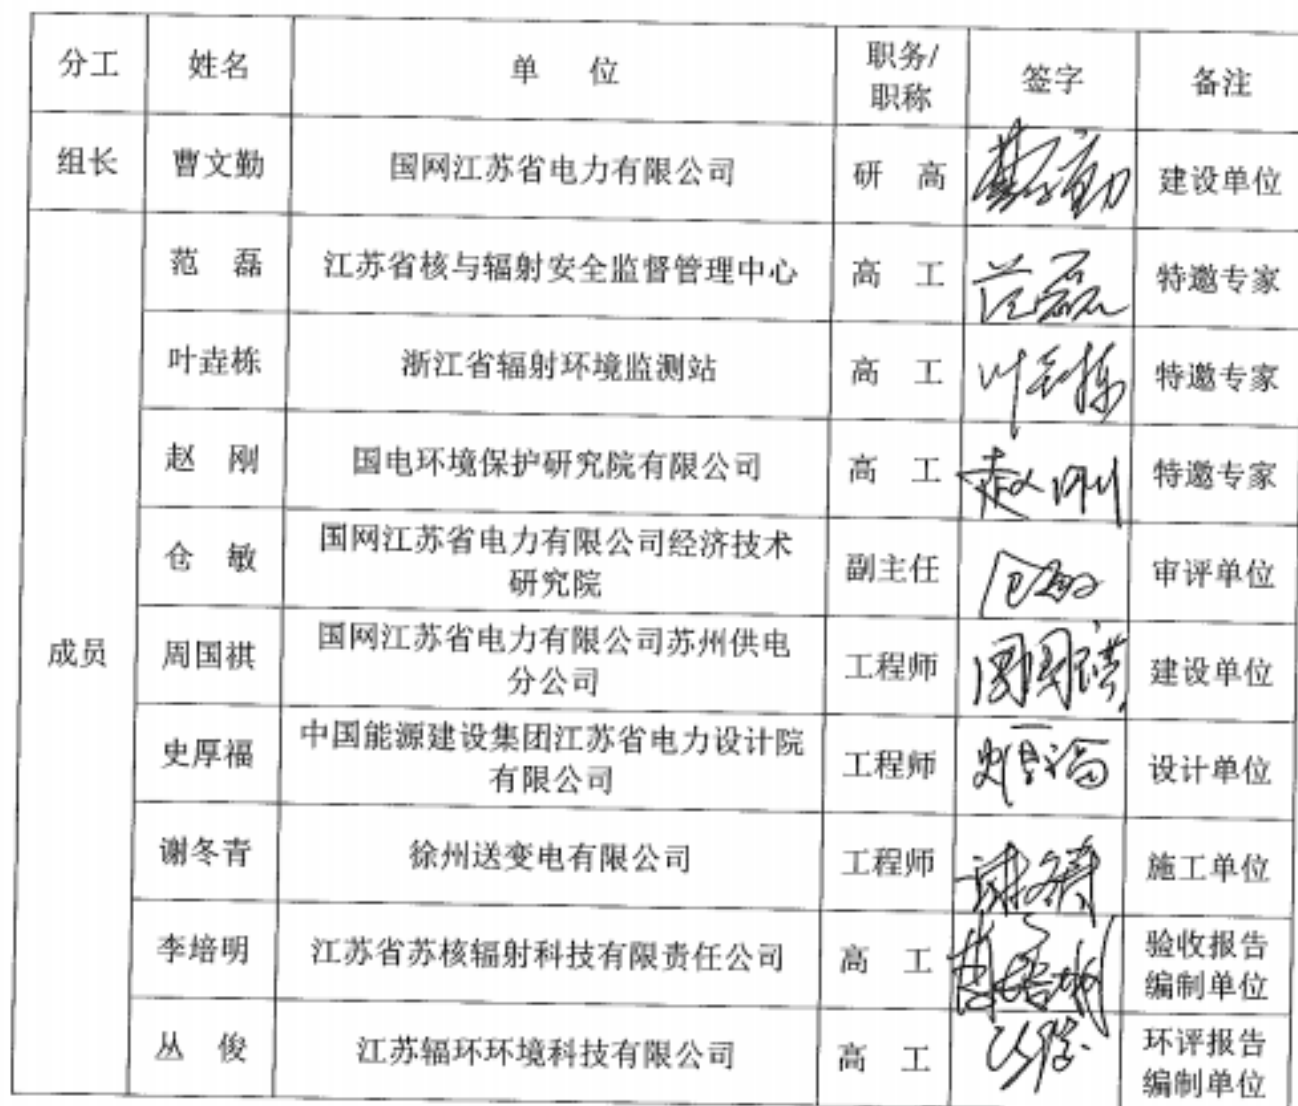 分工 姓名 单 位 职务/ 签字 备注
职称
组长 曹文勤 国网江苏省电力有限公司 研 高 建设单位
范 磊 江苏省核与辐射安全监督管理中心 高 工 范磊 特邀专家
叶垚栋 浙江省辐射环境监测站 高 工 叶垚栋 特邀专家
赵 刚 国电环境保护研究院有限公司 高 工 赵刚 特邀专家
仓 敏 国网江苏省电力有限公司经济技术 副主任 仓敏 审评单位
研究院
成员 周国祺 国网江苏省电力有限公司苏州供电 工程师 周国祺 建设单位
分公司
史厚福 中国能源建设集团江苏省电力设计院 工程师 史厚福 设计单位
有限公司
谢冬青 徐州送变电有限公司 工程师 谢冬青 施工单位
李培明 江苏省苏核辐射科技有限责任公司 高 工 验收报告
编制单位
丛 俊 江苏辐环环境科技有限公司 高 工 丛俊 环评报告
编制单位